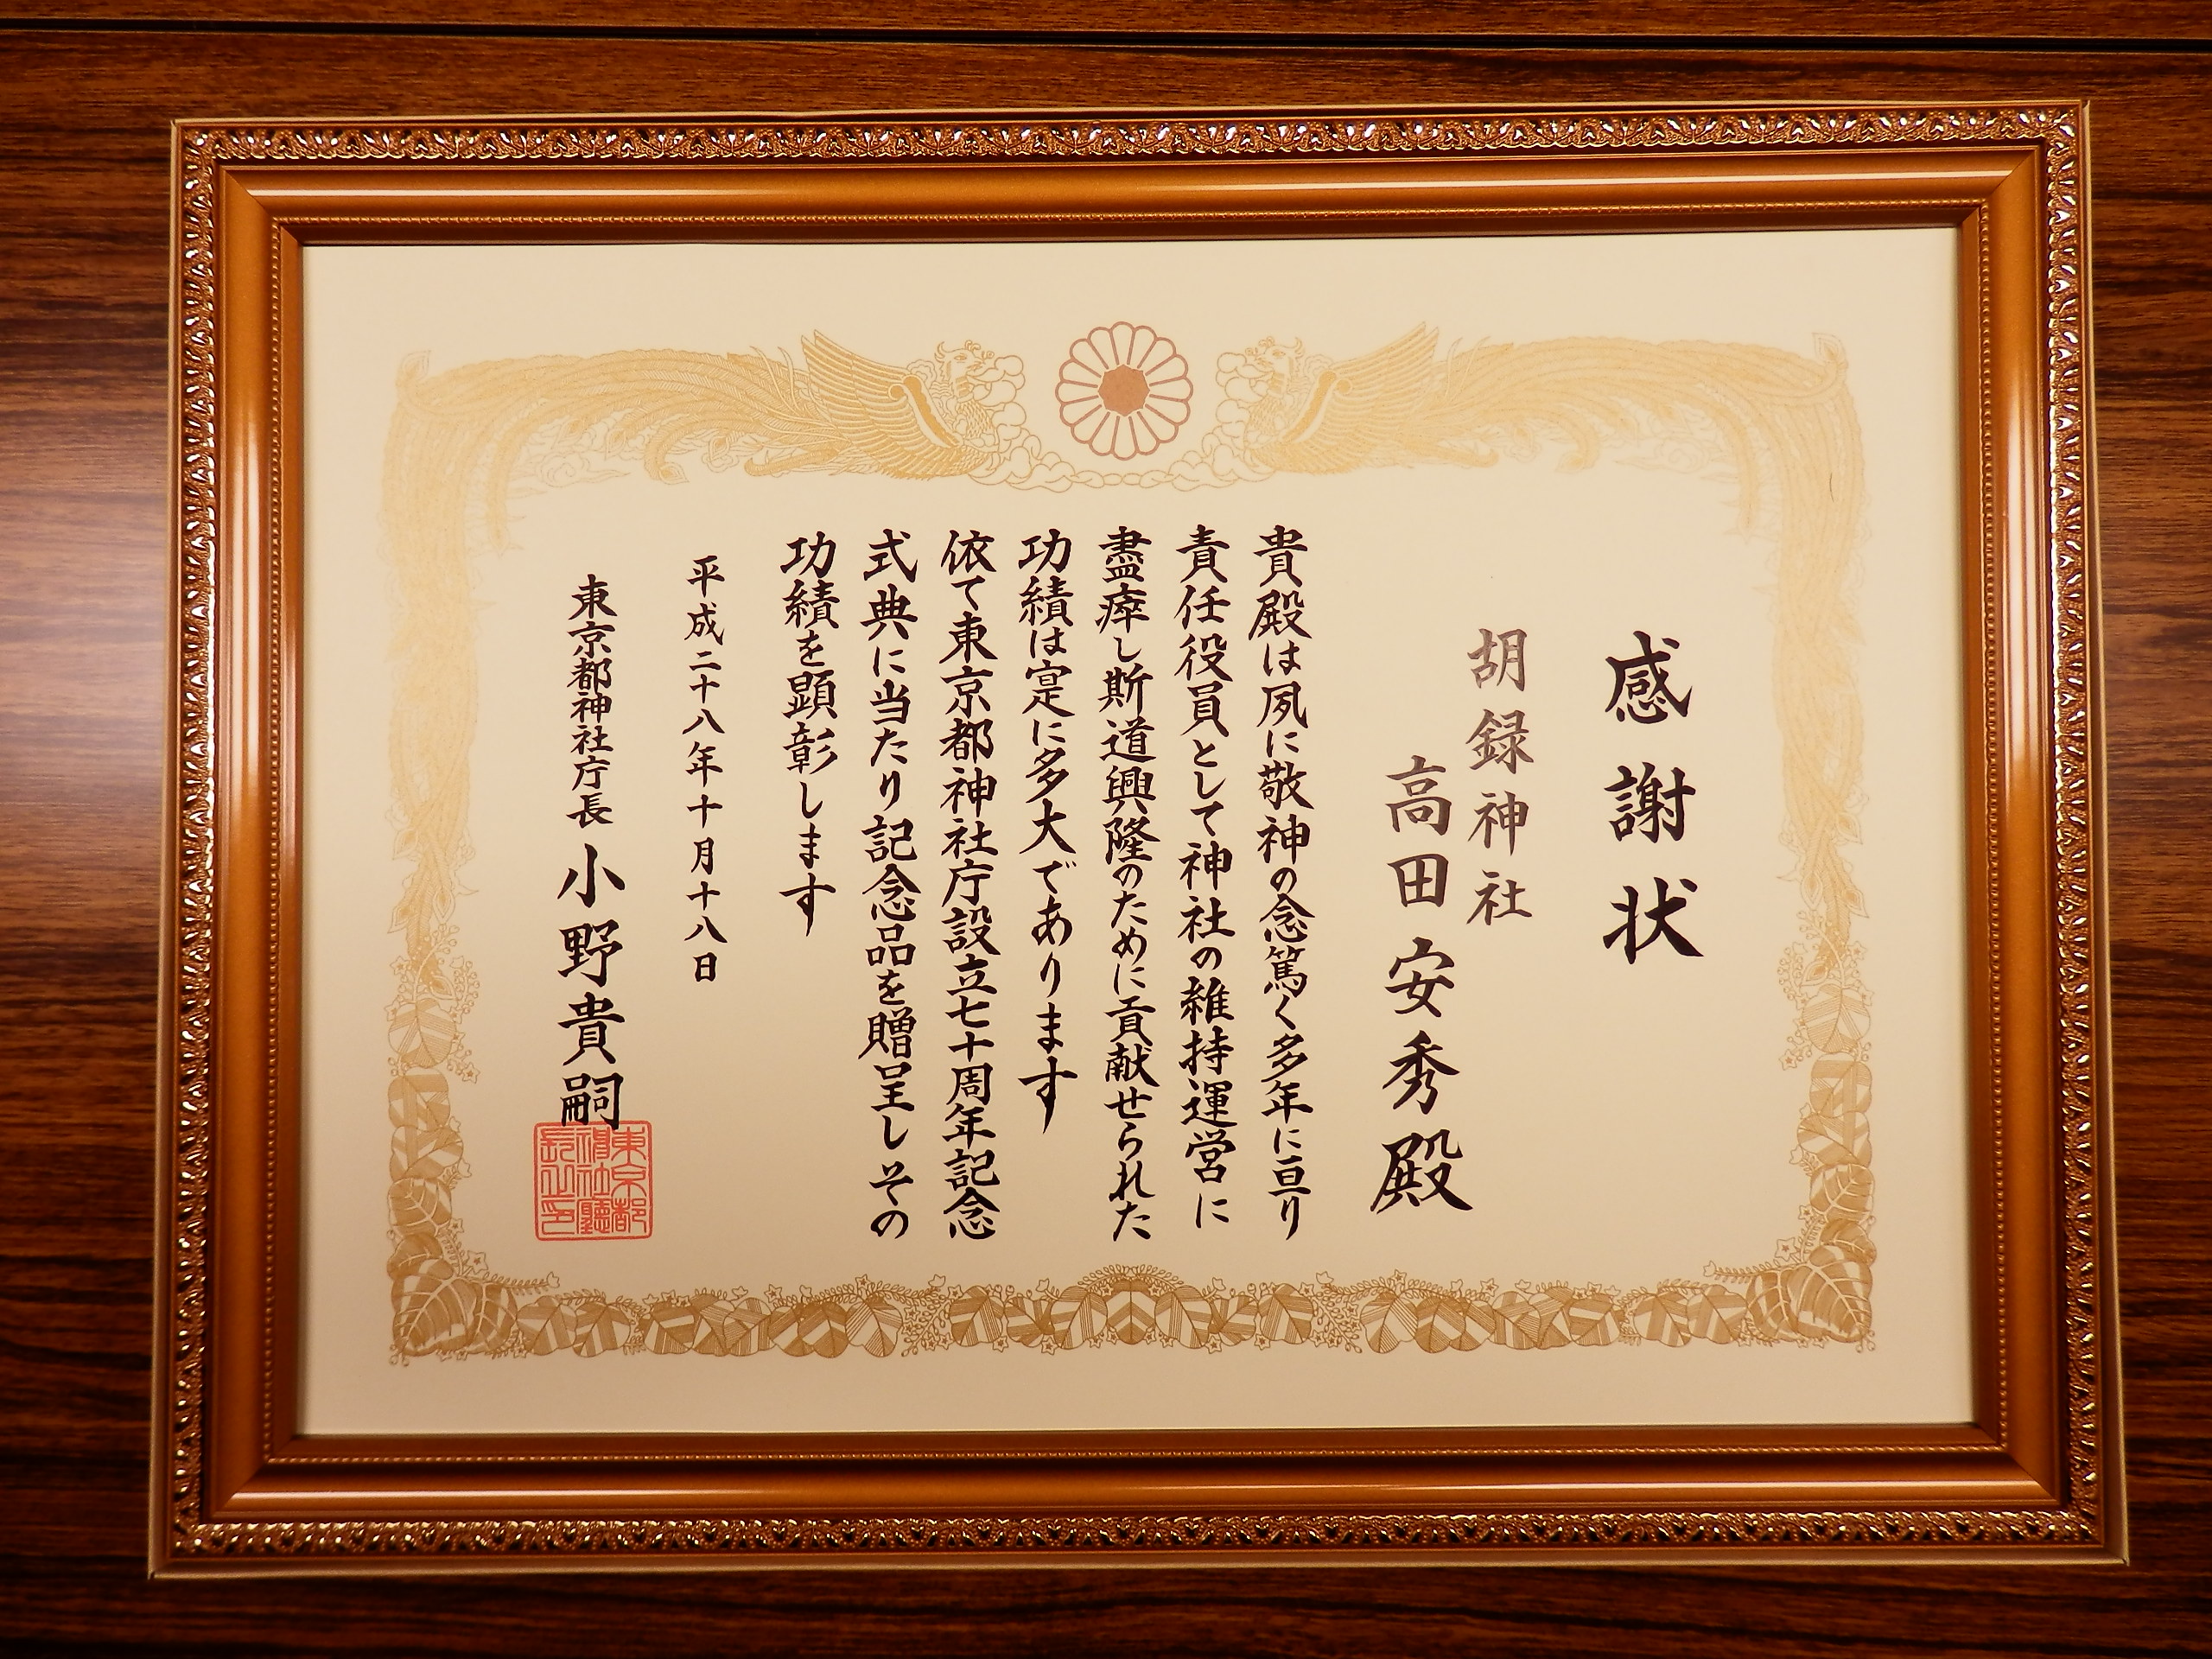 感謝状
胡録神社
高田安秀殿
貴殿は夙に敬神の念篤く多年に亘り
責任役員として神社の維持運営に
盡瘁し斯道興隆のために貢献せられた
功績は寔に多大であります
依て東京都神社庁設立七十周年記念
式典に当たり記念品を贈呈しその
功績を顕彰します
平成二十八年十月十八日
東京都神社庁長 小野貴嗣
東京都
神社廳
長之印